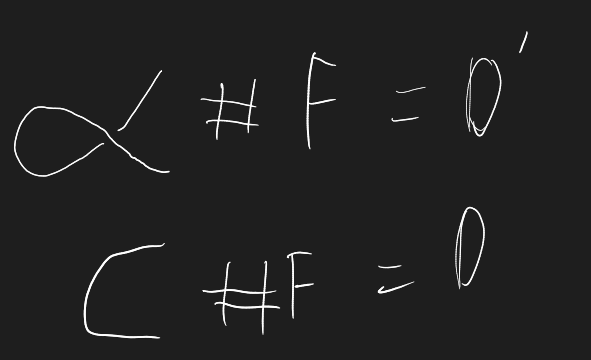 α # F = 0'
C # F = 0